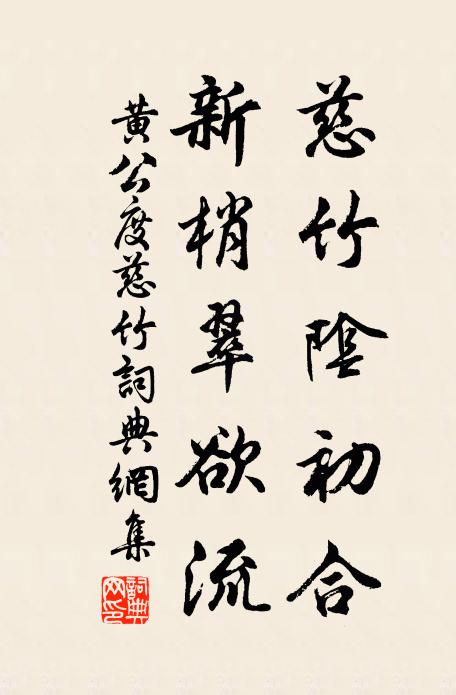 慈竹陰初合
新梢翠欲流
黃公度慈竹詞典網集
詞典网印